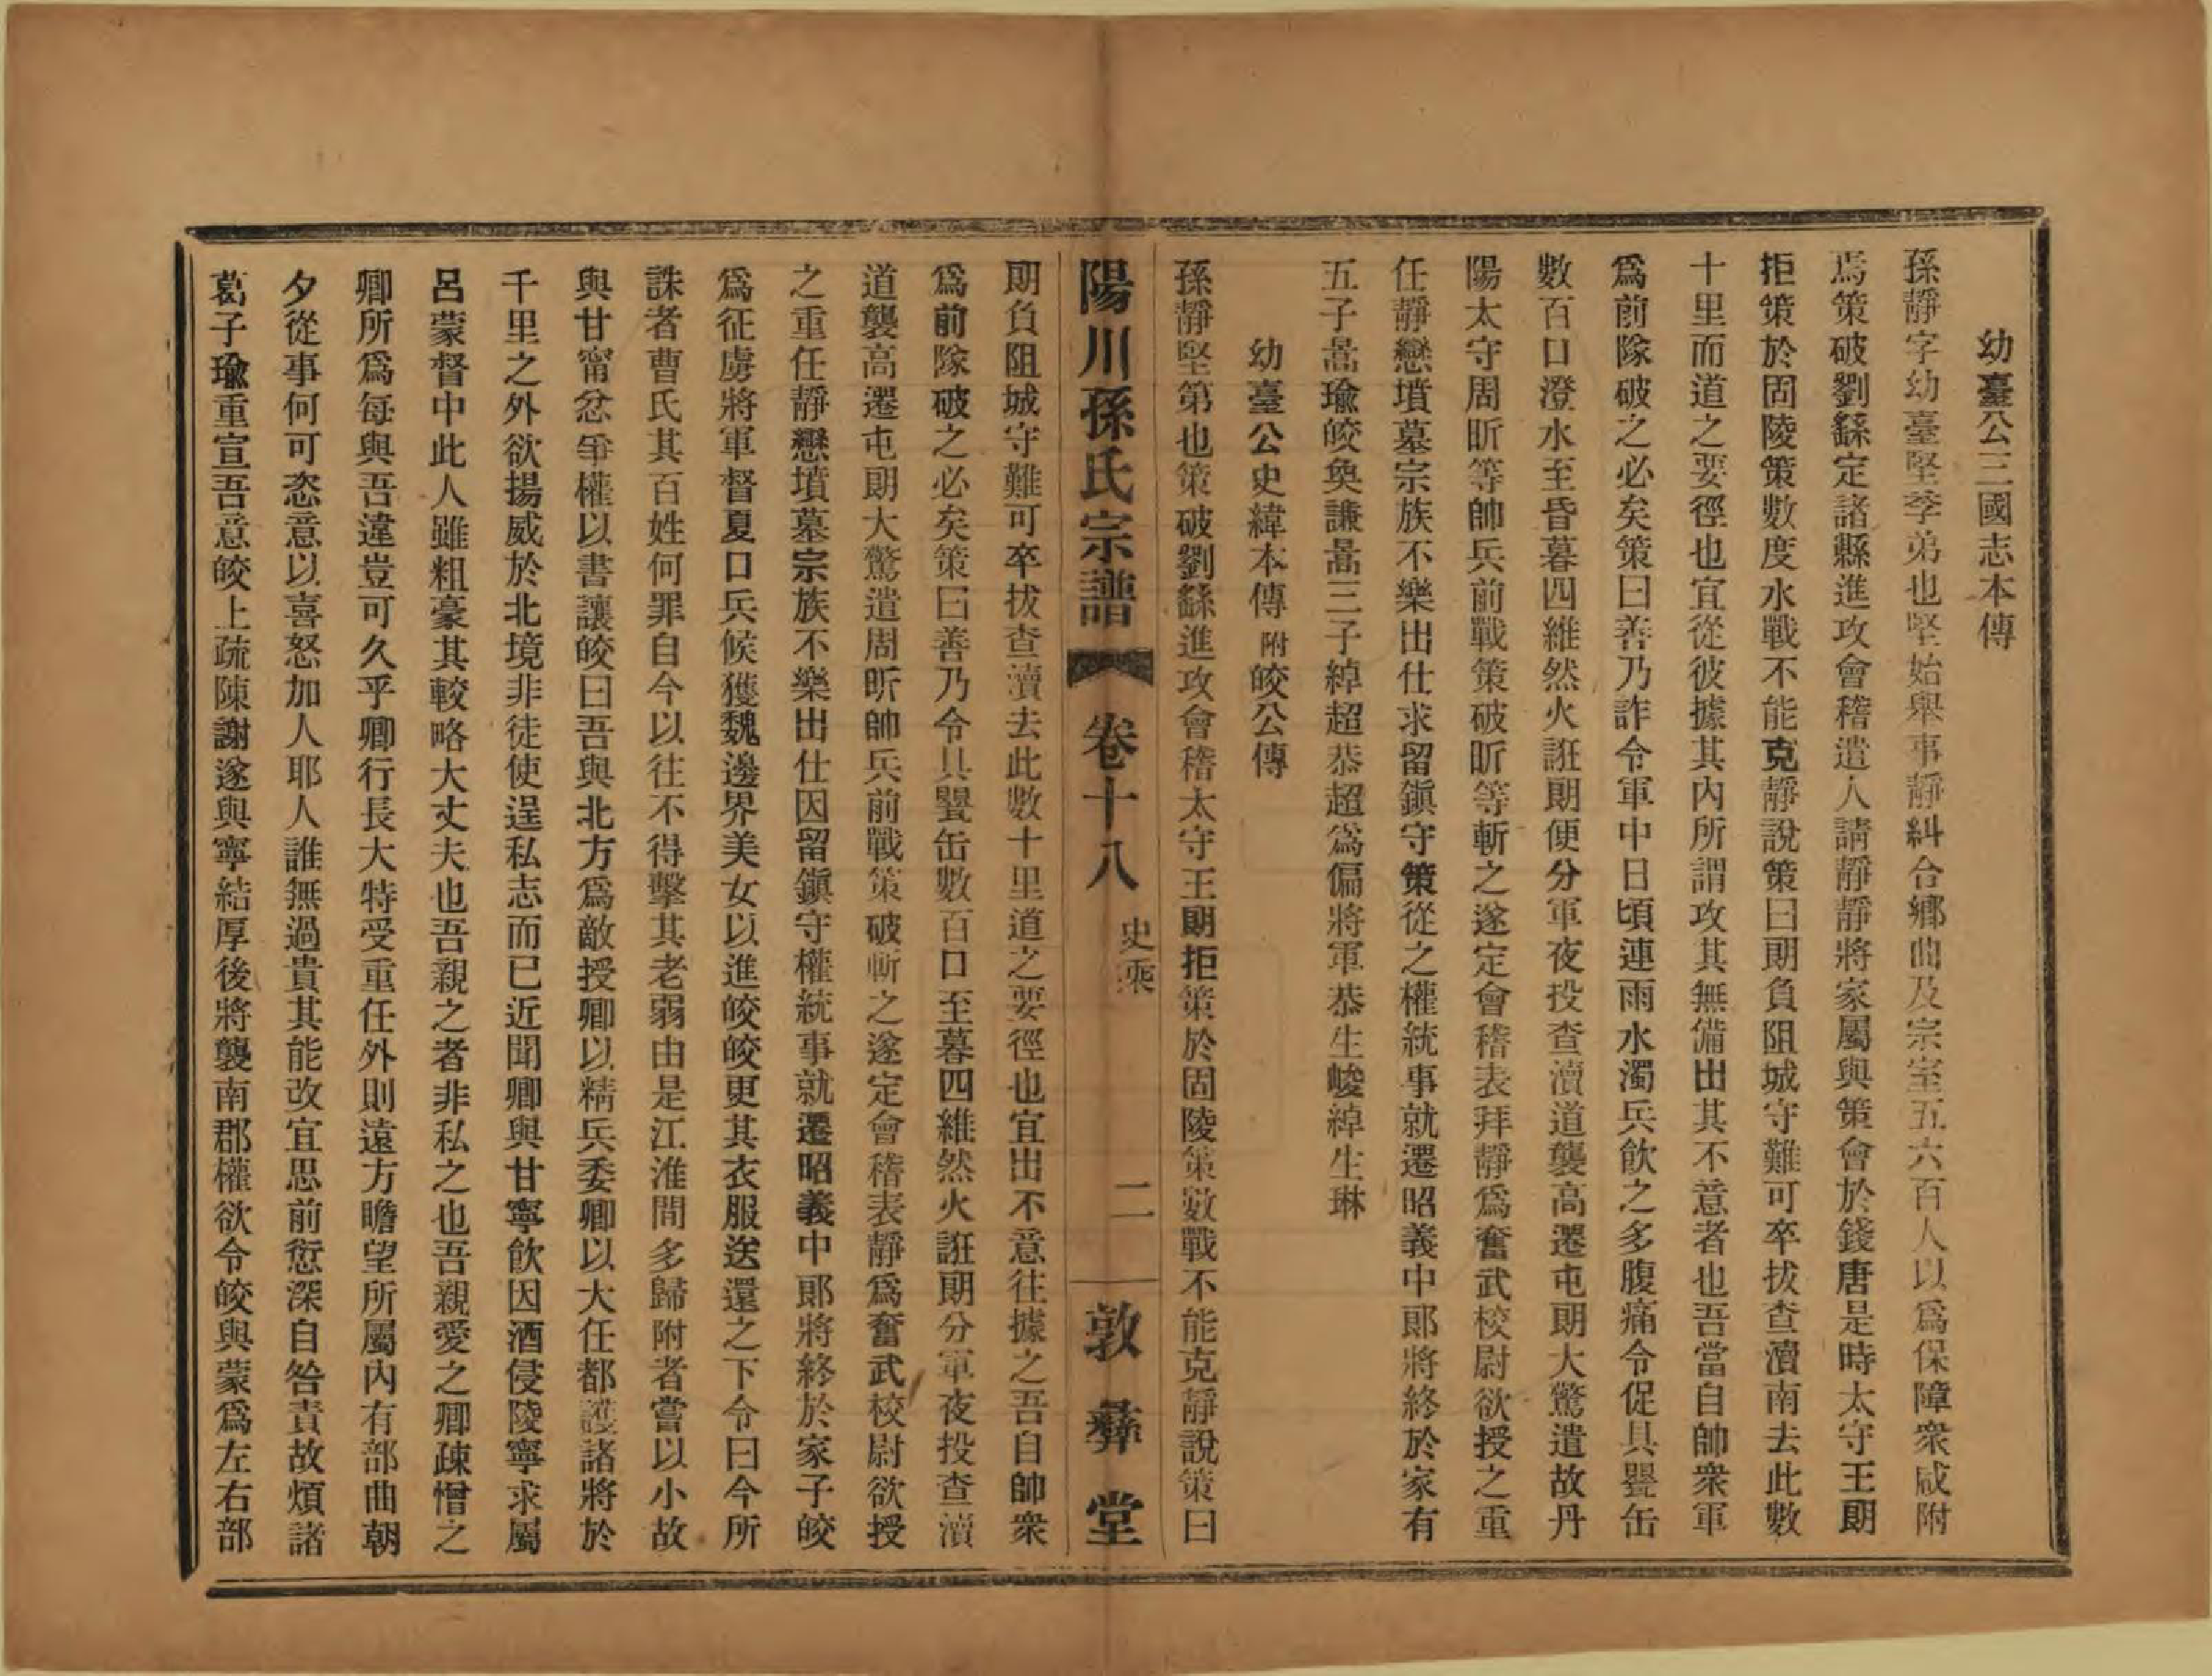 幼臺公三國志本傳
孫靜字幼臺堅季弟也堅始舉事靜糾合鄉曲及宗室五六百人以爲保障衆咸附
焉策破劉繇定諸縣進攻會稽遣人請靜靜將家屬與策會於錢唐是時太守王朗
拒策於固陵策數度水戰不能克靜說策曰朗負阻城守難可卒拔查瀆南去此數
十里而道之要徑也宜從彼據其內所謂攻其無備出其不意者也吾當自帥衆軍
爲前隊破之必矣策曰善乃詐令軍中曰頃連雨水濁兵飲之多腹痛令促具罌缶
數百口澄水至昏暮四維然火誑朗便分軍夜投查瀆道襲高遷屯朗大驚遣故丹
陽太守周昕等帥兵前戰策破昕等斬之遂定會稽表拜靜爲奮武校尉欲授之重
任靜戀墳墓宗族不樂出仕求留鎭守策從之權統事就遷昭義中郎將終於家有
五子暠瑜皎奐謙暠三子綽超恭超爲偏將軍恭生峻綽生琳
幼臺公史緯本傳附皎公傳
孫靜堅第也策破劉繇進攻會稽太守王朗拒策於固陵策數戰不能克靜說策曰
陽川孫氏宗譜 卷十八 史乘 二 敦彝堂
朗負阻城守難可卒拔查瀆去此數十里道之要徑也宜出不意往據之吾自帥衆
爲前隊破之必矣策曰善乃令具罌缶數百口至暮四維然火誑朗分軍夜投查瀆
道襲高遷屯朗大驚遣周昕帥兵前戰策破斬之遂定會稽表靜爲奮武校尉欲授
之重任靜戀墳墓宗族不樂出仕因留鎭守權統事就遷昭義中郎將終於家子皎
爲征虜將軍督夏口兵候獲魏邊界美女以進皎皎更其衣服送還之下令曰今所
誅者曹氏其百姓何罪自今以往不得擊其老弱由是江淮間多歸附者嘗以小故
與甘甯忿爭權以書讓皎曰吾與北方爲敵授卿以精兵委卿以大任都護諸將於
千里之外欲揚威於北境非徒使逞私志而已近聞卿與甘寧飲因酒侵陵寧求屬
呂蒙督中此人雖粗豪其較略大丈夫也吾親之者非私之也吾親愛之卿疎憎之
卿所爲每與吾違豈可久乎卿行長大特受重任外則遠方瞻望所屬內有部曲朝
夕從事何可恣意以喜怒加人耶人誰無過貴其能改宜思前愆深自咎責故煩諸
葛子瑜重宣吾意皎上疏陳謝遂與寧結厚後將襲南郡權欲令皎與蒙爲左右部